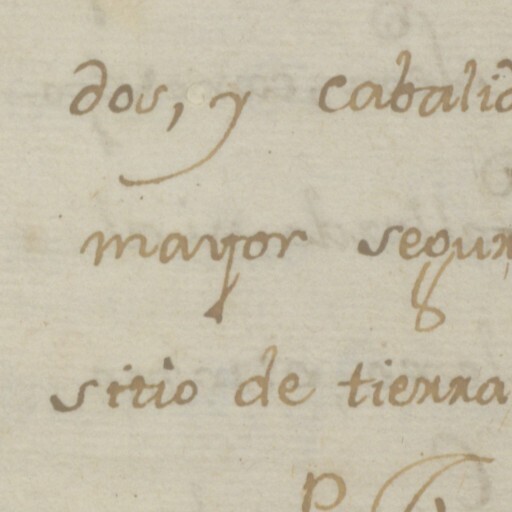 dos, y cabalid
mayor segun
sitio de tierra